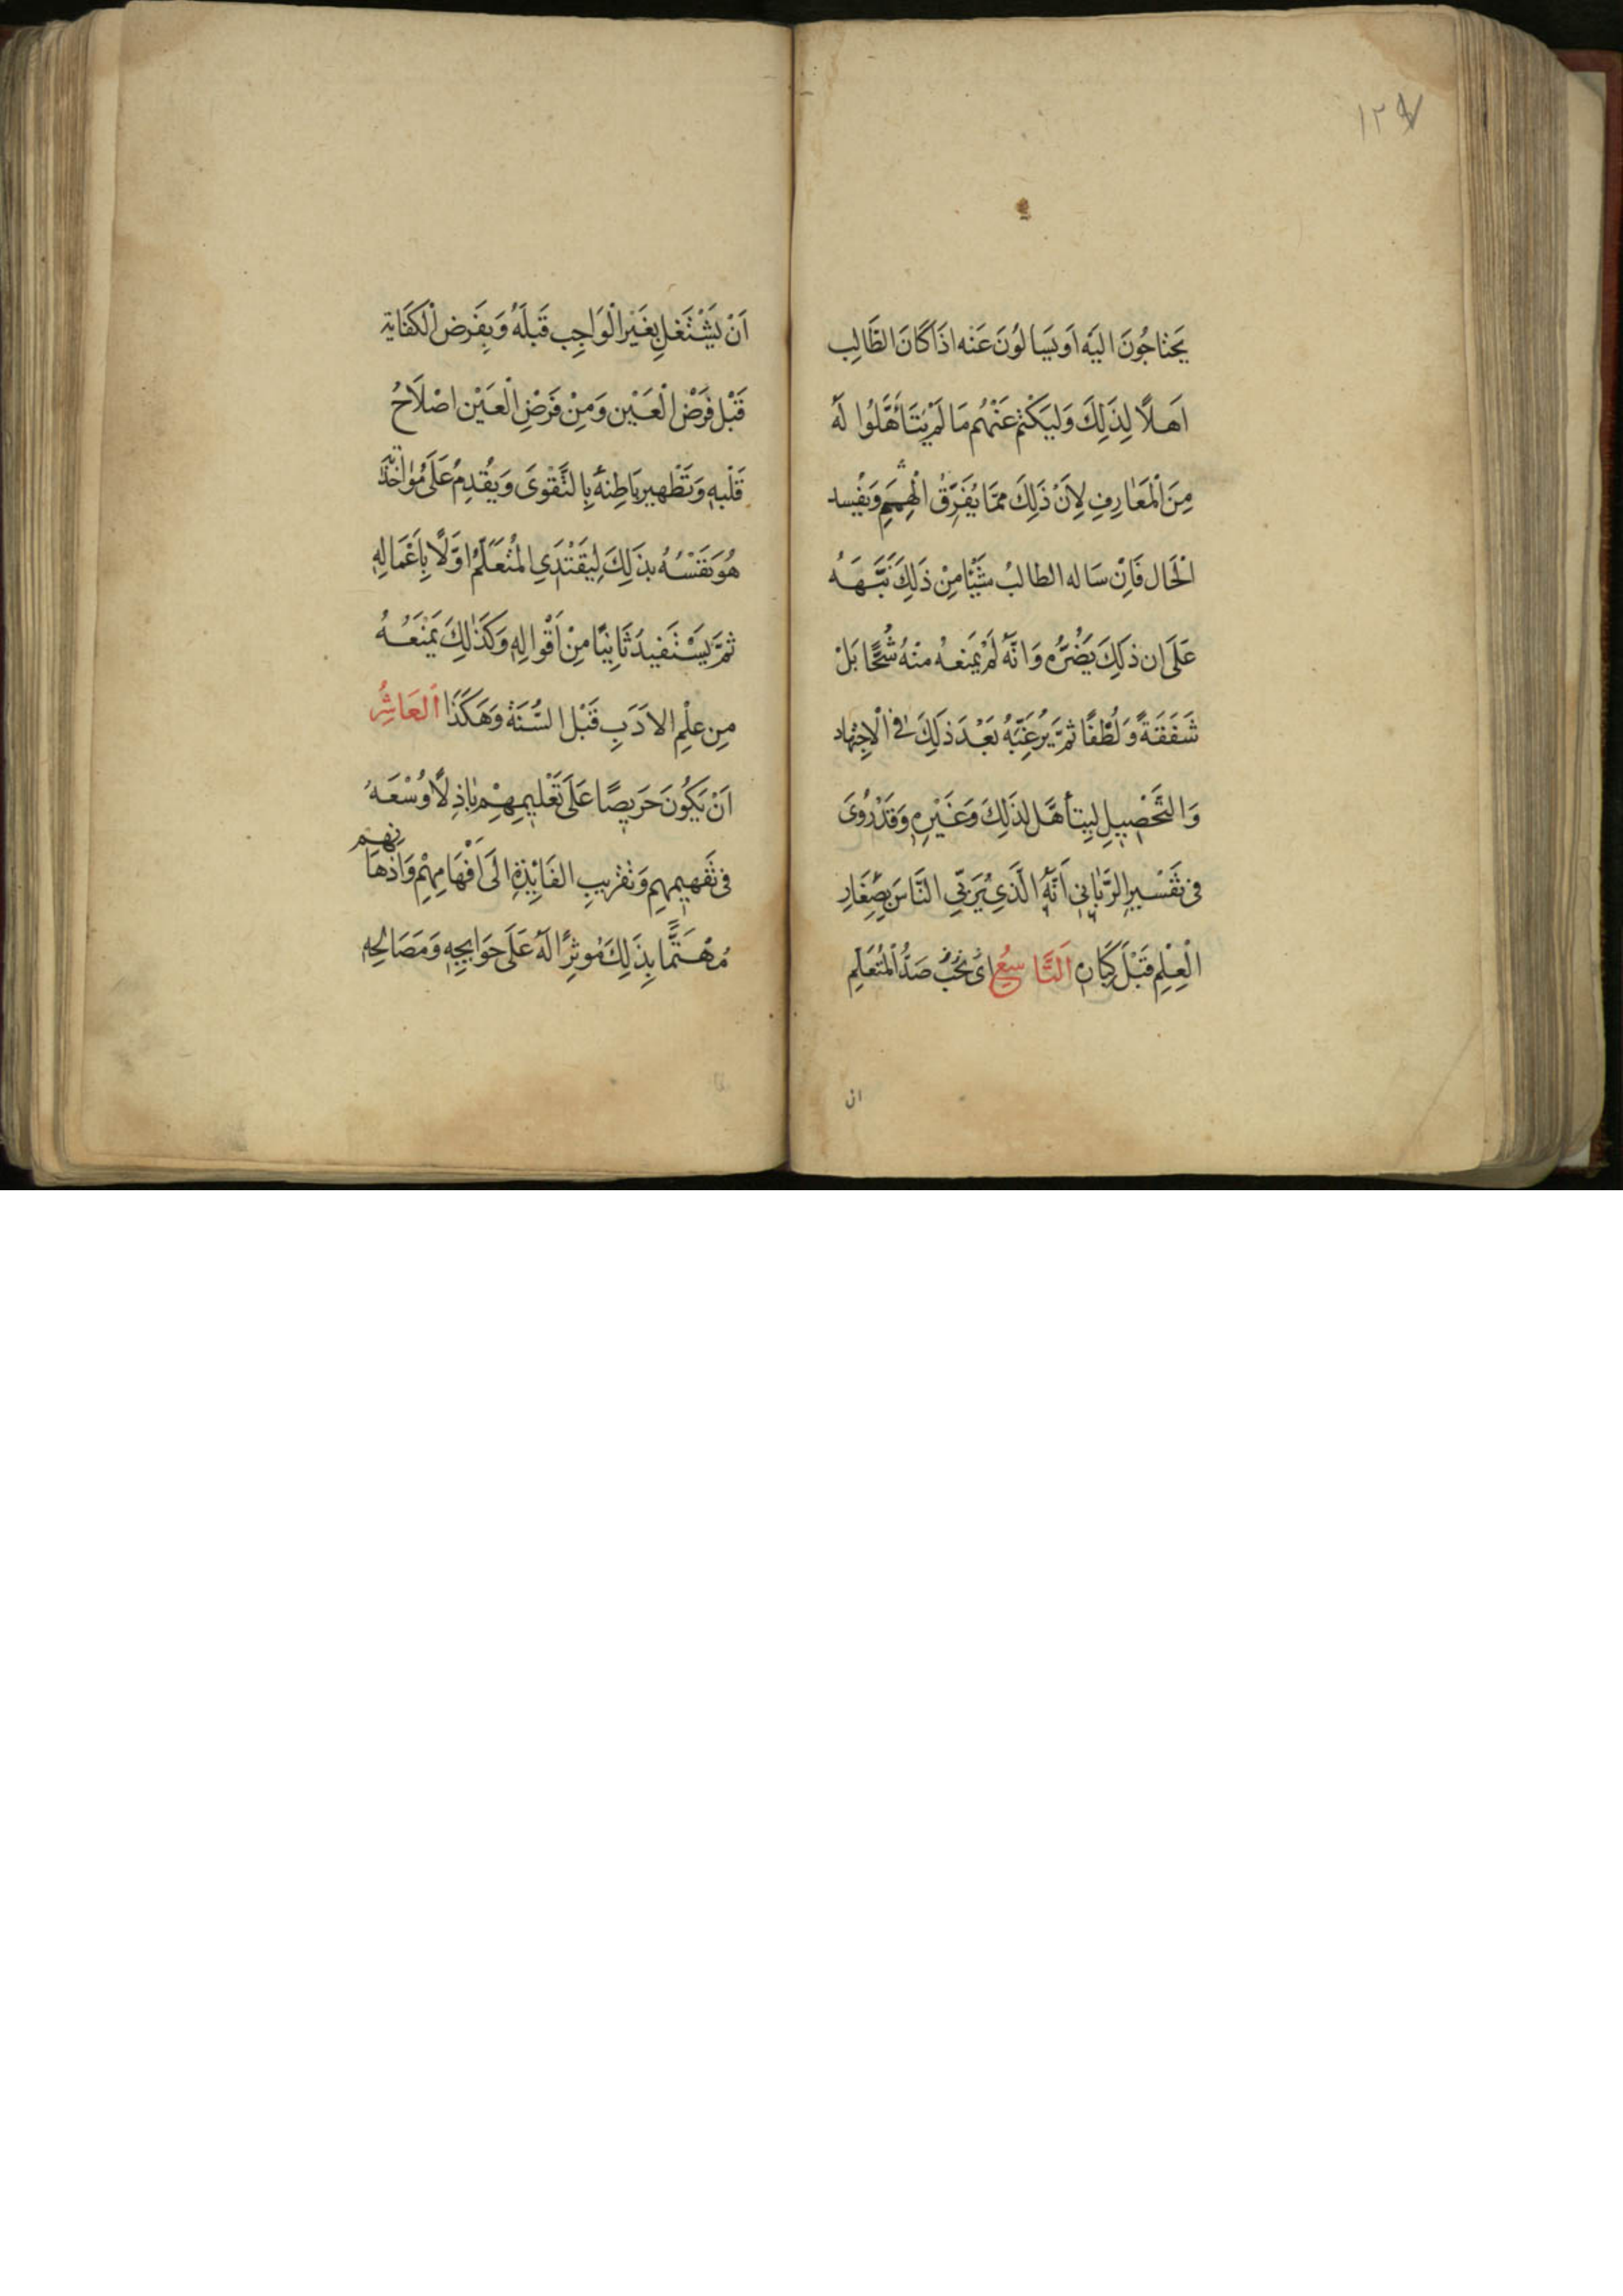 ١٢٩٧
يَحتاجُونَ اليَه اَو يَسألُونَ عَنه اذَا كَانَ الطَّالِب
اَهلاً لِذَلِكَ وَليَكْتُم عَنْهُم مَا لَمْ يَتَأَهَّلُوا لَهُ
مِنَ الْمَعَارِفِ لِاَنَّ ذَلِكَ مِمَّا يُفَرِّقُ الْهِمَمِ وَيُفْسِد
الْحَال فَاِنْ سَاله الطالبُ شَيْئًا مِنْ ذَلِكَ نَبَّهَهُ
عَلَى ان ذلَكِ يَضُرُّه وَانَّهُ لَمْ يَمنعهُ منْهُ شُحًّا بَلْ
شَفَقَةً وَلُطْفًا ثمَّ يُرَغِّبُهُ بَعْدَ ذلَكَ في الْاِجتِهاد
وَالتَّحْصِيلِ لِيتأهَّل لذَلِكَ وَغَيْرِهِ وَقَدْ رُوِىَ
في تَفْسيرِ الرَّبَّانِي اَنَّهُ الَّذِي يُرَبِّي النَّاسَ بِصِغَارِ
الْعِلْمِ قَبْلَ كِبَارِهِ اَلتَّاسِعُ اَىْ يَجِبُ صَدُّ الْمُتَعَلِّمِ
ان
اَنْ يَشْتَغلِ بِغَيْرِ الْوَاجِبِ قَبلَهُ وَبِفَرضِ الْكَفَايَة
قَبْل فَرْضِ الْعَيْنِ وَمِنْ فَرْضِ الْعَيْنِ اصْلَاحُ
قَلْبهِ وَتَطْهير بَاطِنهُ بِالتَّقْوىَ وَيُقَدِمُ عَلَى مُؤاخَذَة
هُوَ نَفَسْهُ بذَلِكَ لِيَقْتَدَي الْمُتَعَلِّمُ اوَّلًا بِاَعْمَالِهِ
ثمَّ يَسْتَفيدَ ثَانِيًا مِنْ اَقْوالِهِ وَكَذَلِكَ يَمْنَعُهُ
مِن عِلْمِ الادَبِ قَبْل السُّنَة وَهَكَذَا اَلعَاشُر
اَنْ يَكُونَ حَرَيصًا عَلَى تَعْليمِهِمْ بَاذِلًا وُسْعَهُ
في تَفَهيِمِهِم وَتقرَيبِ الفَائِدَةِ الَى اَفْهَامِهِمْ وَاَذهَانِهِم
مُهْتَمًّا بِذَلِكَ مُوثِرًا لَهُ عَلَى حَوَايجِهِ وَمَصَالِحِهِ